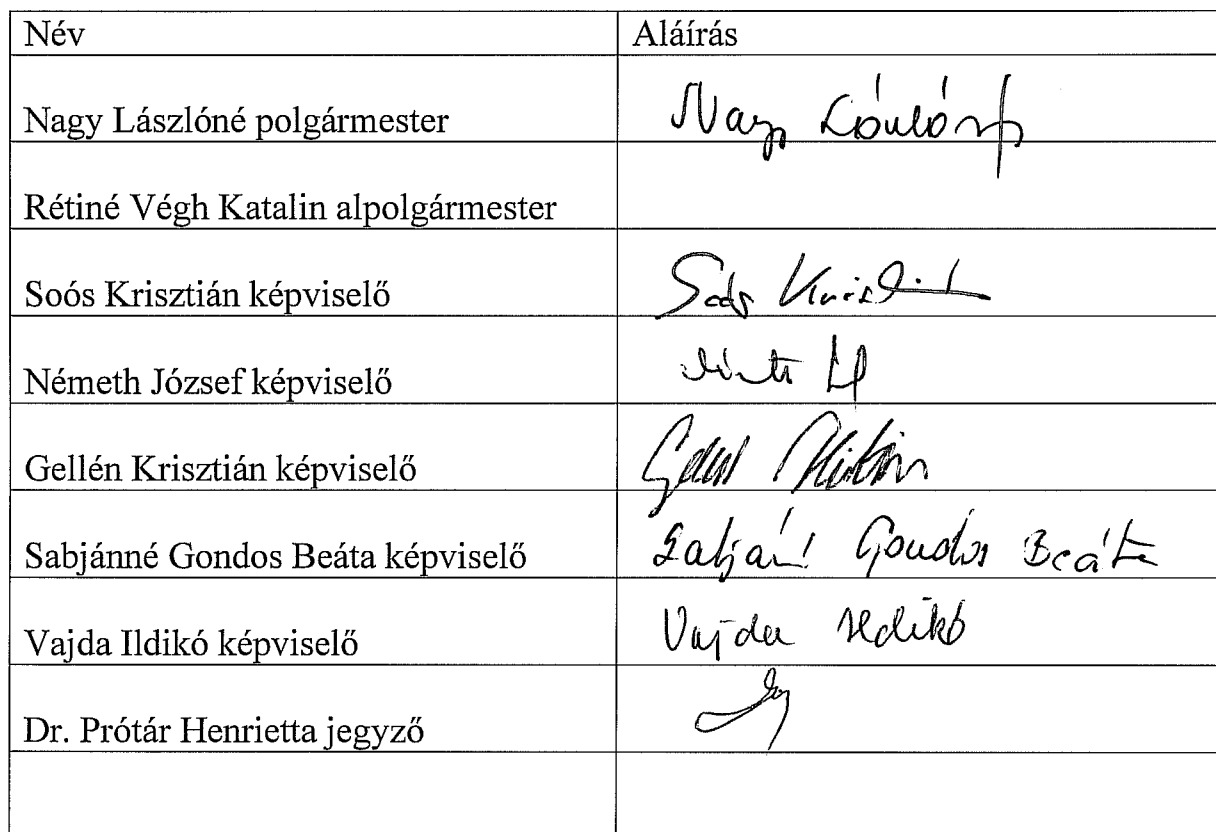 Név Aláírás
Nagy Lászlóné polgármester Nagy Lászlóné
Rétiné Végh Katalin alpolgármester
Soós Krisztián képviselő Soós Krisztián
Németh József képviselő
Gellén Krisztián képviselő
Sabjánné Gondos Beáta képviselő Gondos Beáta
Vajda Ildikó képviselő Vajda Ildikó
Dr. Prótár Henrietta jegyző